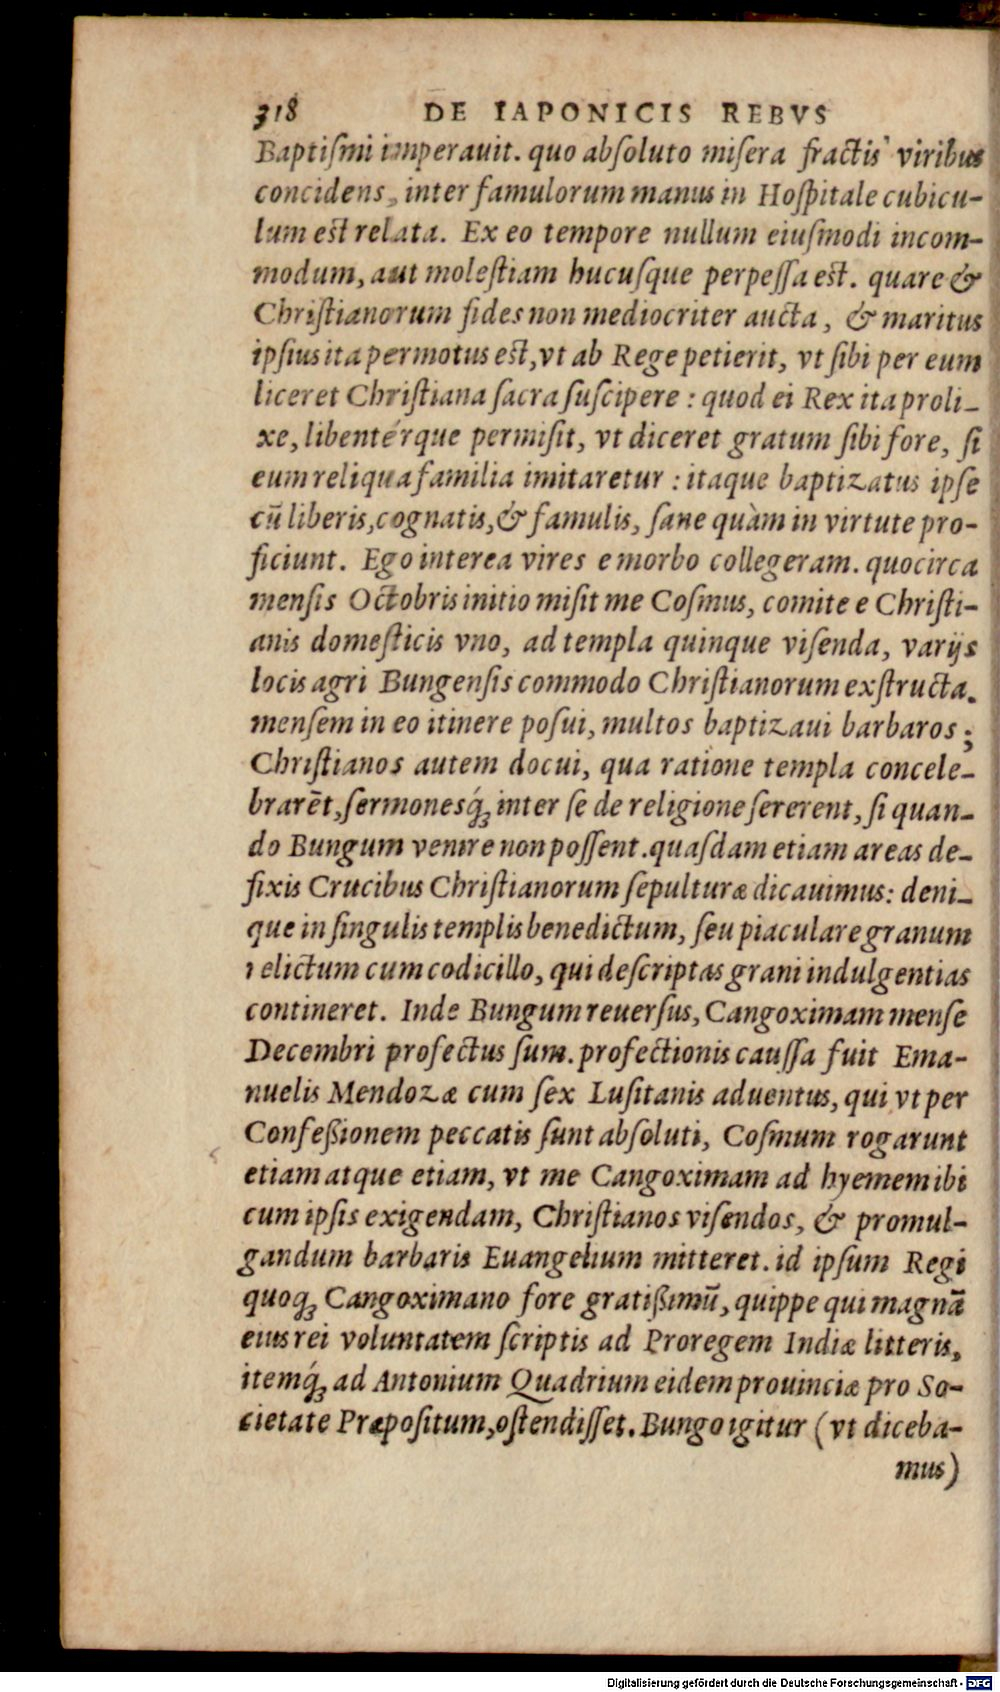 318 DE IAPONICIS REBVS
Baptiſmi imperauit. quo abſoluto miſera fractis viribus
concidens, inter famulorum manus in Hoſpitale cubicu-
lum est relata. Ex eo tempore nullum eiuſmodi incom-
modum, aut moleſtiam hucuſque perpeſſa est. quare &
Chriſtianorum fides non mediocriter aucta, & maritus
ipſius ita permotus est, vt ab Rege petierit, vt ſibi per eum
liceret Chriſtiana ſacra ſuſcipere : quod ei Rex ita proli-
xe, libentérque permiſit, vt diceret gratum ſibi fore, ſi
eum reliqua familia imitaretur : itaque baptizatus ipſe
cū liberis, cognatis, & famulis, ſane quàm in virtute pro-
ficiunt. Ego interea vires e morbo collegeram. quocirca
menſis Octobris initio miſit me Coſmus, comite e Chriſti-
anis domeſticis vno, ad templa quinque viſenda, varijs
locis agri Bungenſis commodo Chriſtianorum exſtructa.
menſem in eo itinere poſui, multos baptizaui barbaros ;
Chriſtianos autem docui, qua ratione templa concele-
brarēt, ſermonesq́; inter ſe de religione ſererent, ſi quan-
do Bungum venire non poſſent. quaſdam etiam areas de-
fixis Crucibus Chriſtianorum ſepulturæ dicauimus: deni-
que in ſingulis templis benedictum, ſeu piaculare granum
relictum cum codicillo, qui deſcriptas grani indulgentias
contineret. Inde Bungum reuerſus, Cangoximam menſe
Decembri profectus ſum. profectionis cauſſa fuit Ema-
nuelis Mendozæ cum ſex Luſitanis aduentus, qui vt per
Confeßionem peccatis ſunt abſoluti, Coſmum rogarunt
etiam atque etiam, vt me Cangoximam ad hyemem ibi
cum ipſis exigendam, Chriſtianos viſendos, & promul-
gandum barbaris Euangelium mitteret. id ipſum Regi
quoq; Cangoximano fore gratißimū, quippe qui magnā
eius rei voluntatem ſcriptis ad Proregem Indiæ litteris,
itemq́; ad Antonium Quadrium eidem prouinciæ pro So-
cietate Præpoſitum, oſtendiſſet. Bungo igitur (vt diceba-
mus)
Digitalisierung gefördert durch die Deutsche Forschungsgemeinschaft - DFG